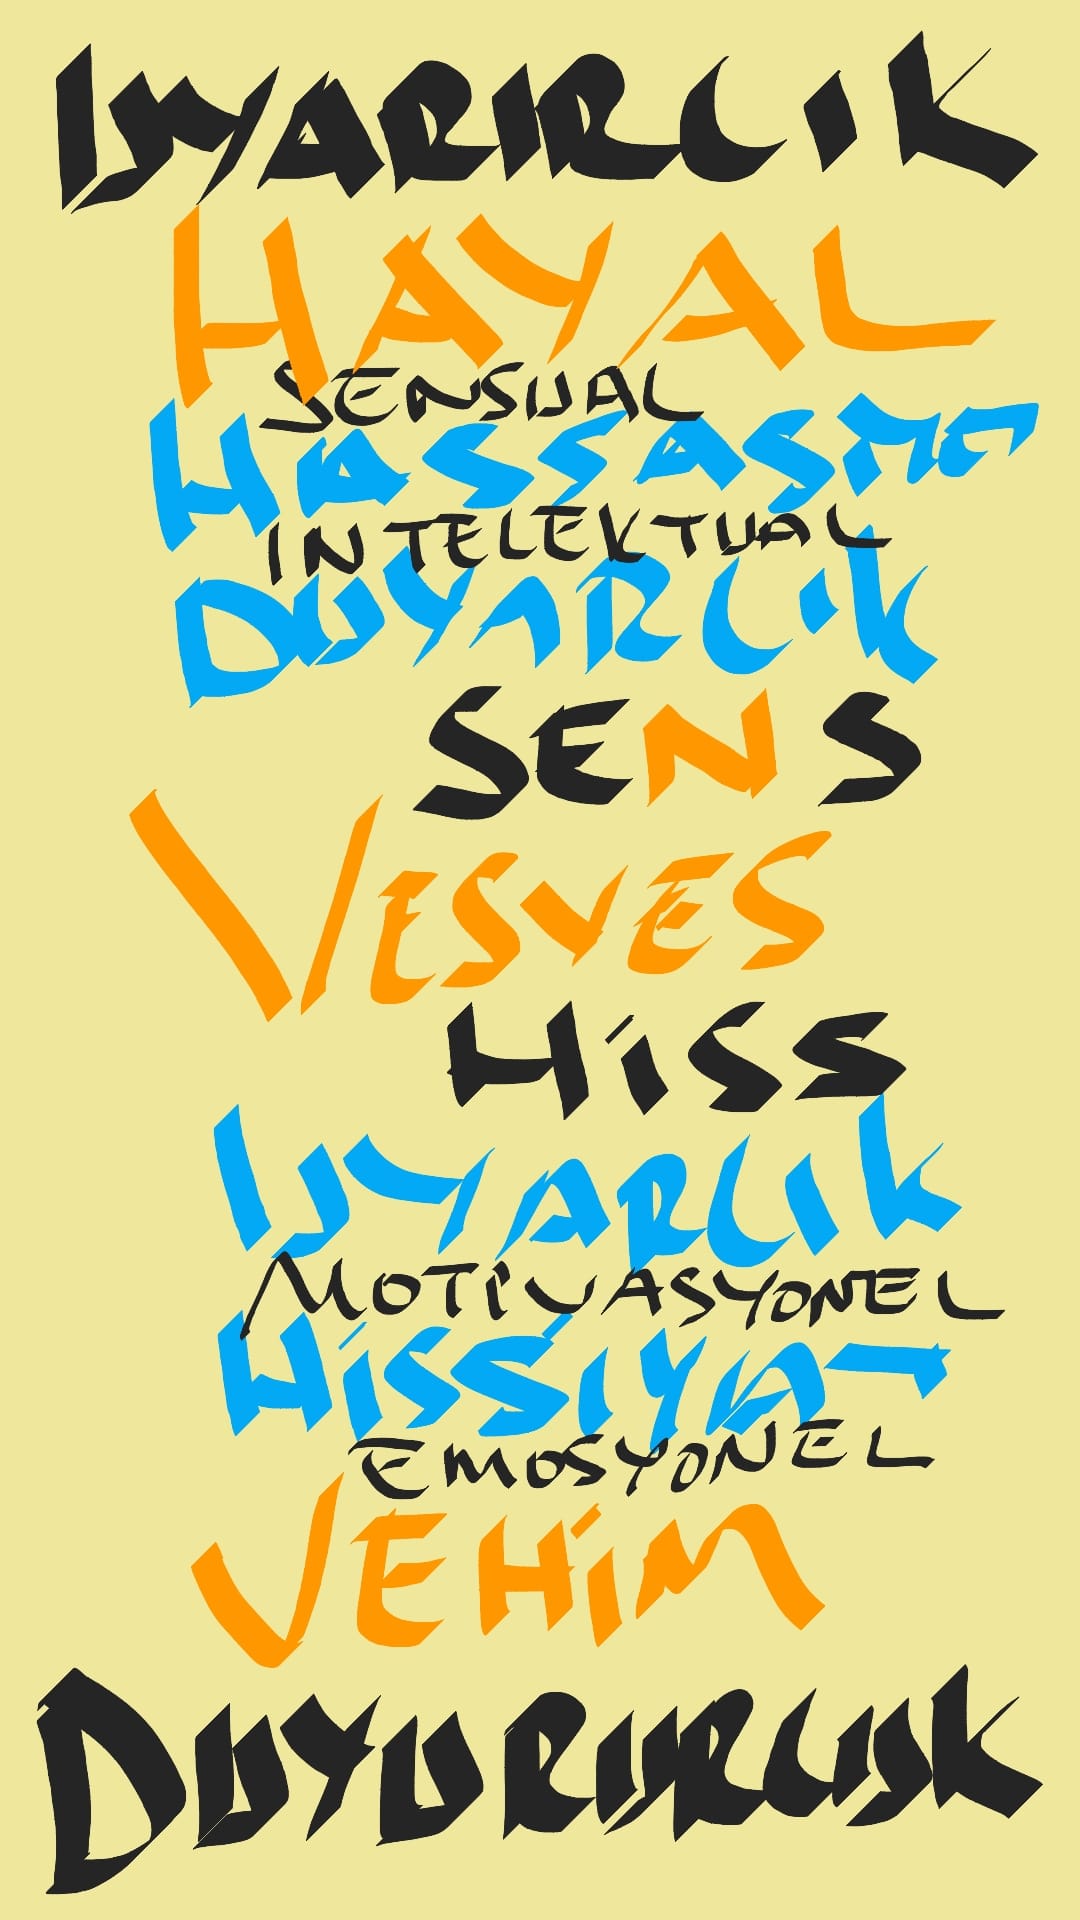 UYARIRLIK
HAYAL
SENSUAL
INTELEKTUAL
DUYARLIK
SENS
VESVES
HiSS
UYARLIK
MOTiVASYONEL
HiSSiYAT
EMOSYONEL
VEHiM
DUYURURLUK